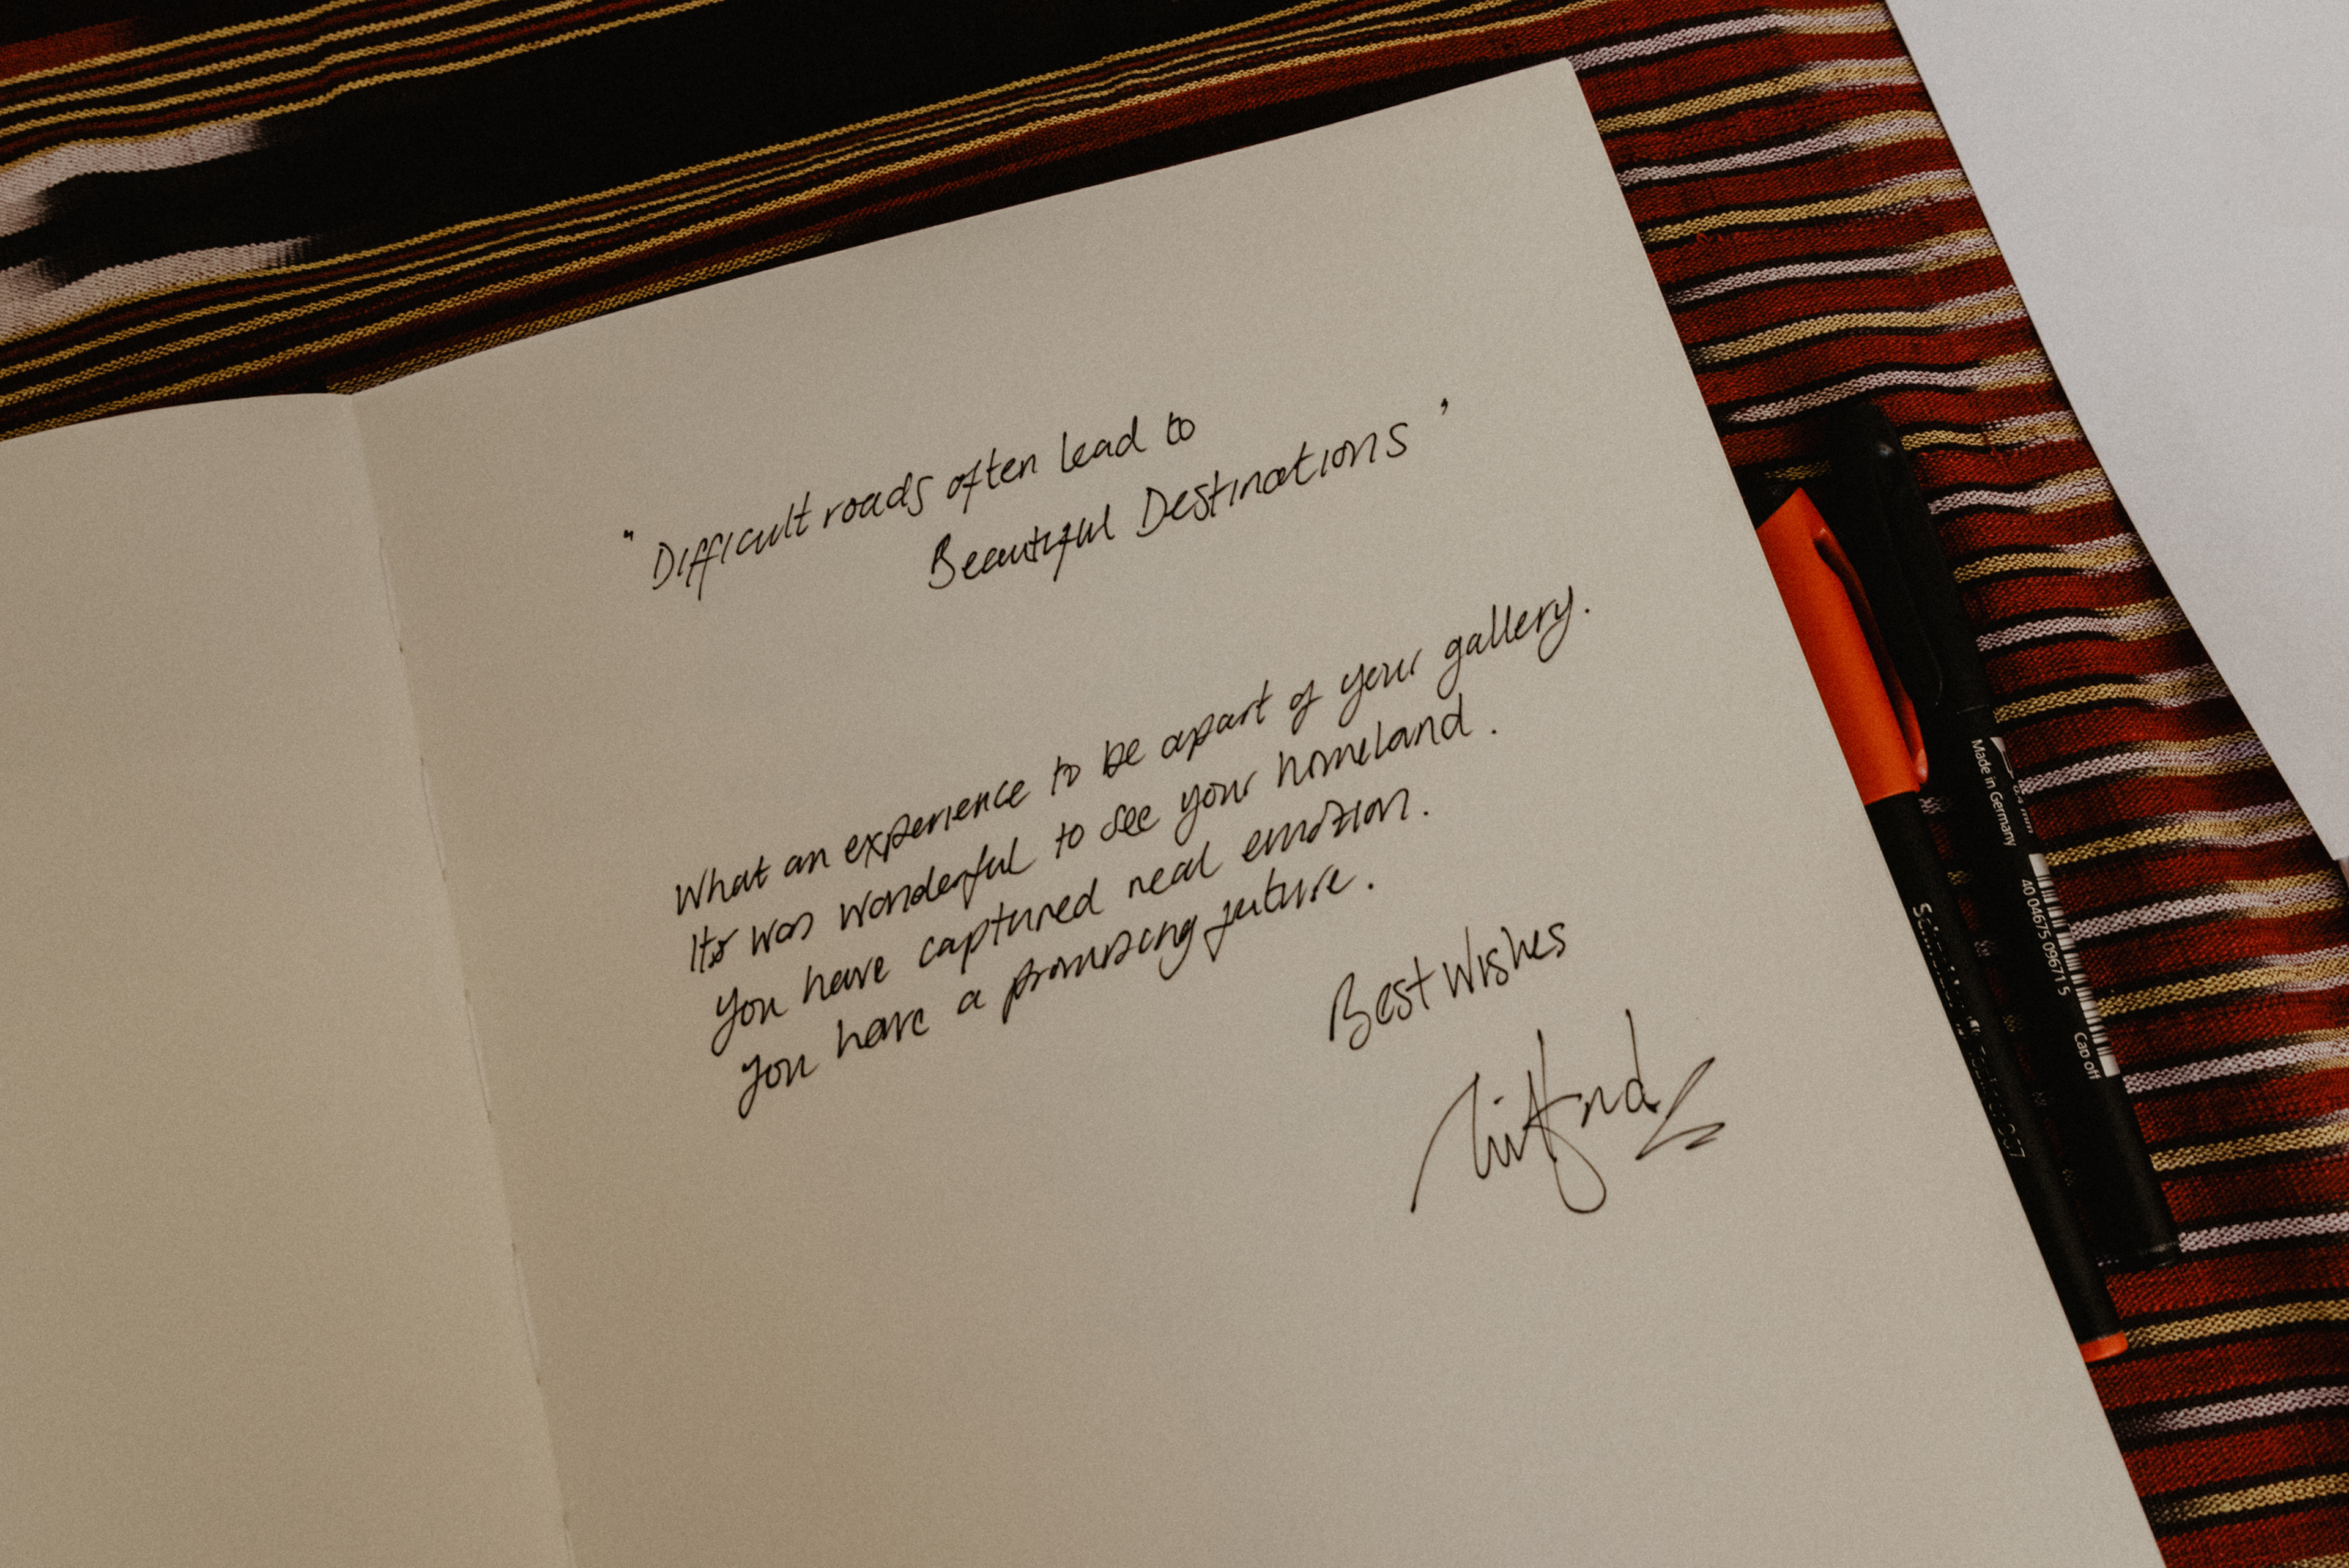 "Difficult roads often lead to
Beautiful Destinations"
What an experience to be apart of your gallery.
Its was wonderful to see your homeland.
You have captured real emotion.
You have a promising future.
Best Wishes
Made in Germany
0.4 mm
40 04675 09671 5
Cap off